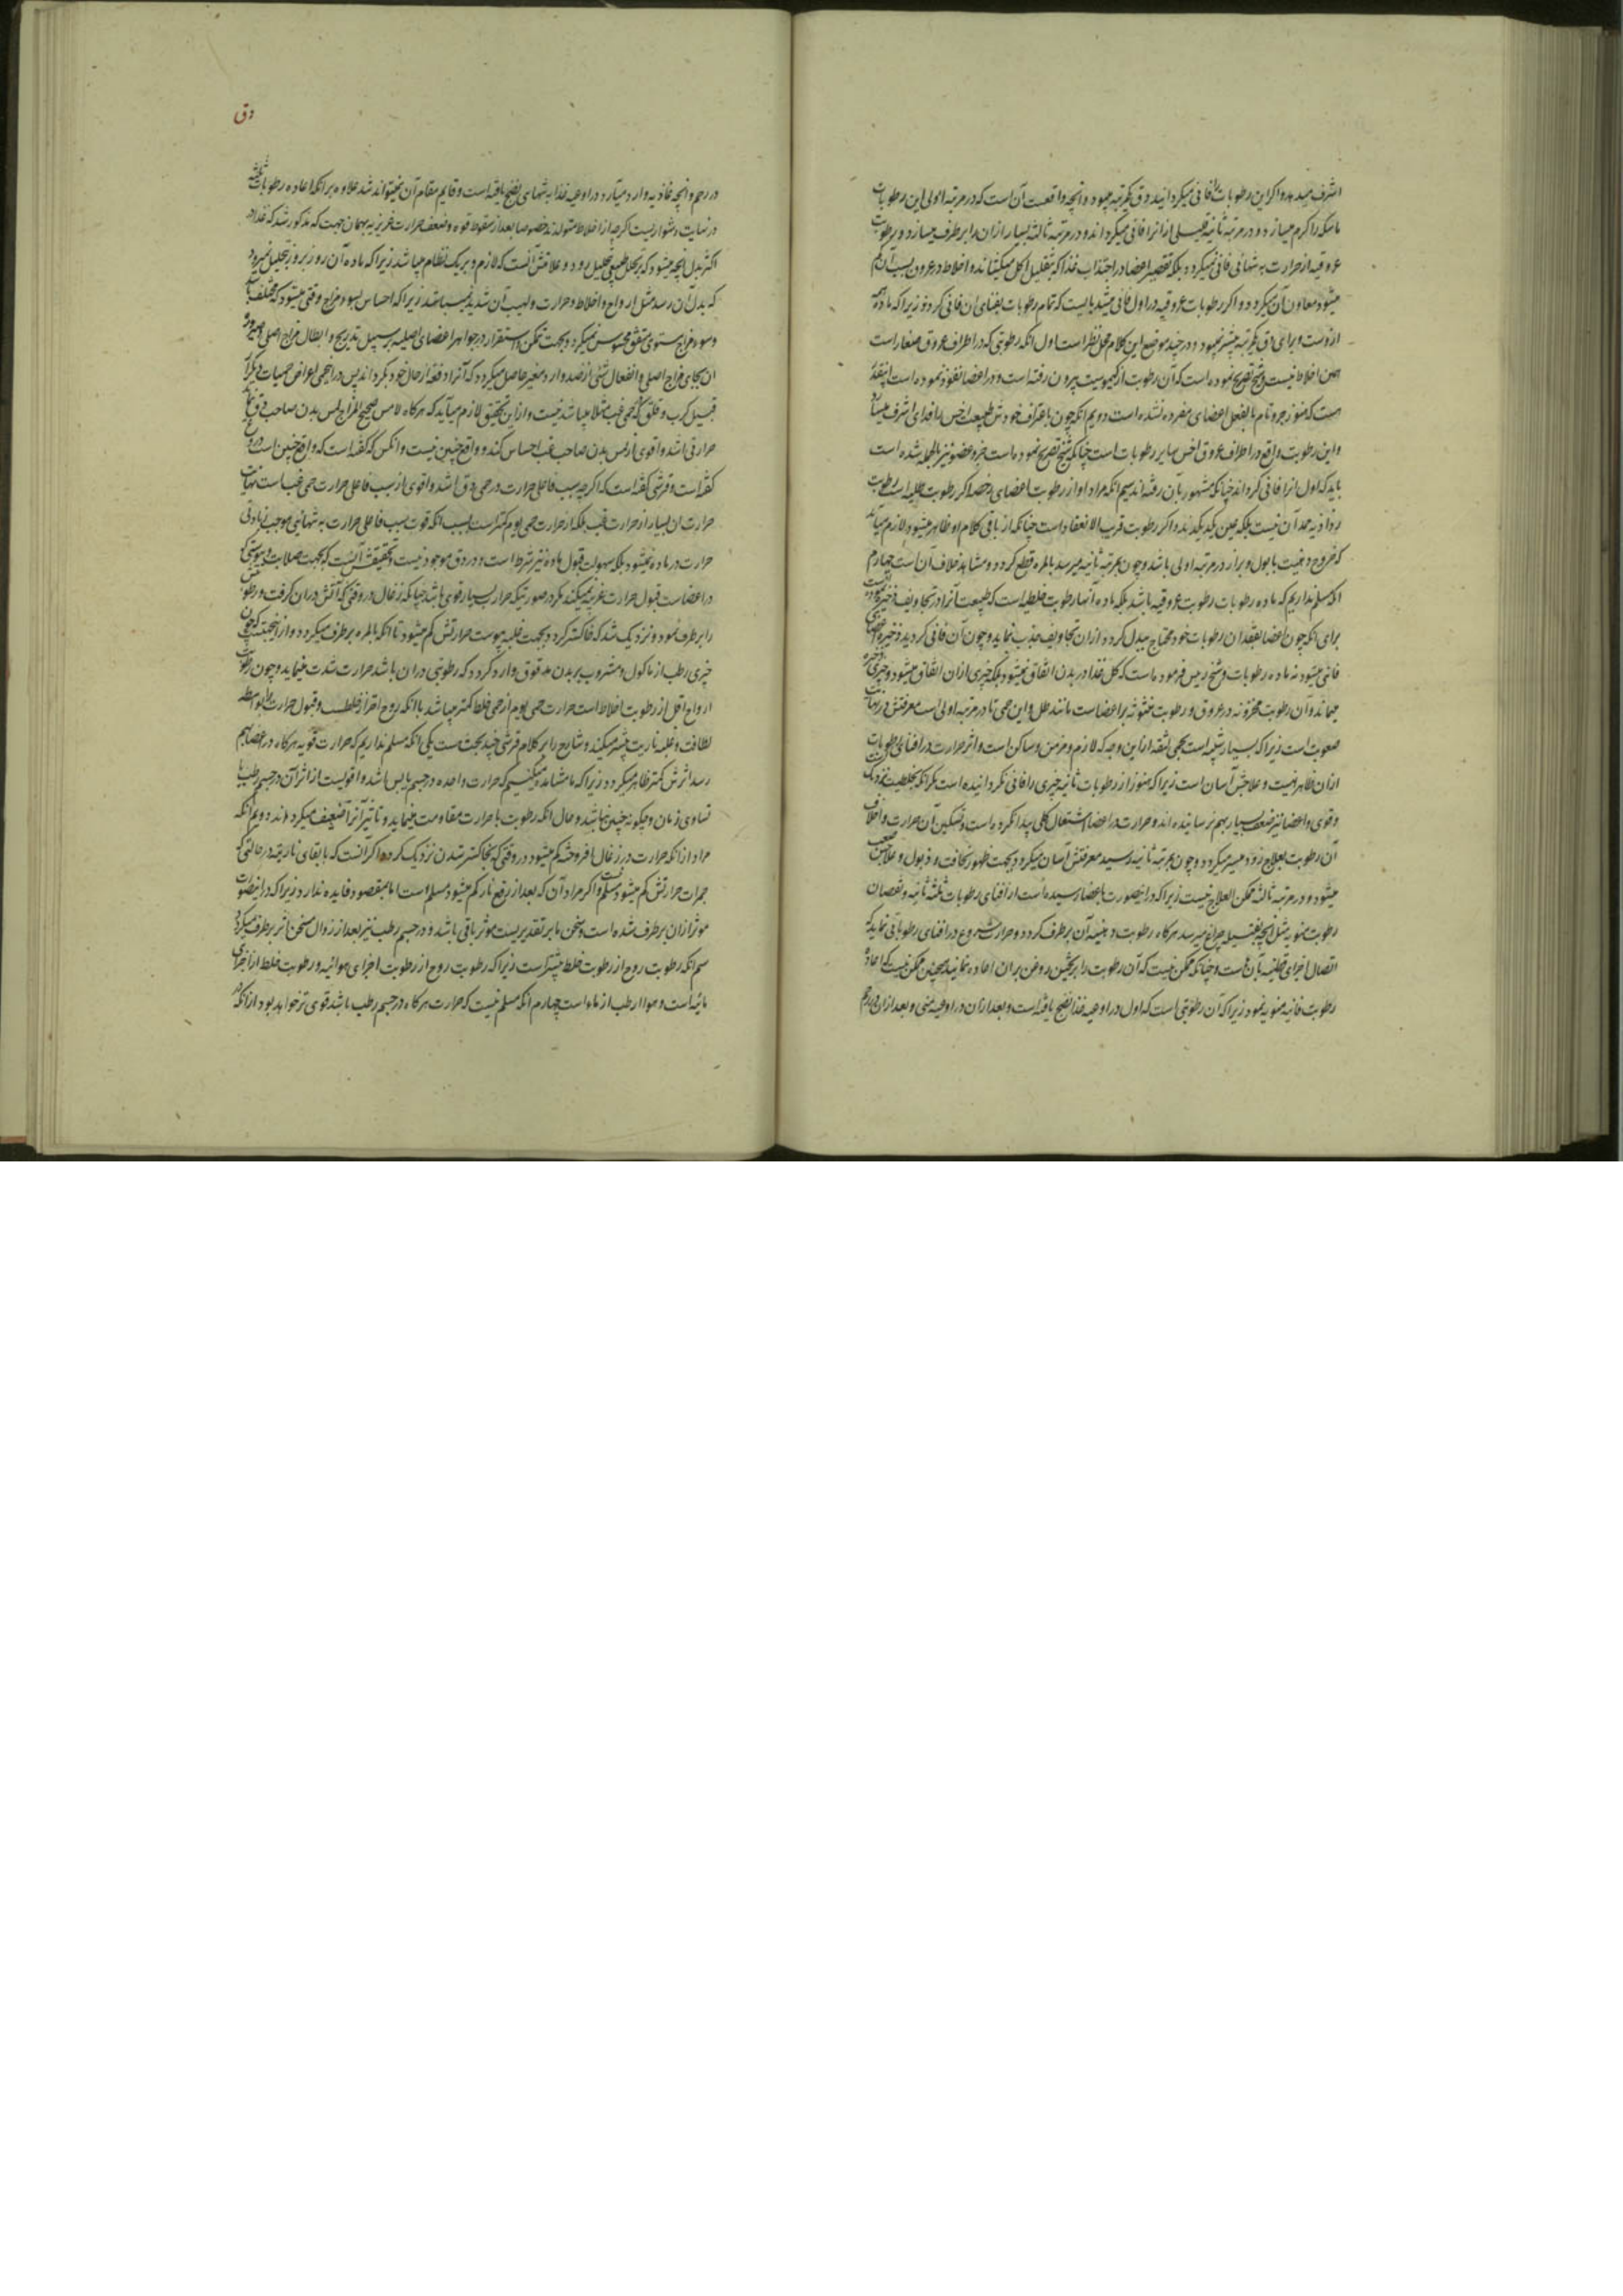 اشرف میدهد و اکر این رطوبات را فانی میکردانید دق یکمرتبه میبود و آنچه واقعست آن است که در مرتبه اولی این رطوبات
ماسکه را کرم میسازد و در مرتبه ثانیه قلیلی از انرا فانی میکرداند و در مرتبه ثالثه بسیار ازان را برطرف میسازد و رطوبت
عروقیه از حرارت به تنهائی فانی نمیکردد بلکه تقصیر اعضا در اجتذاب غذا که بتقلیل اکل میکشاند و اخلاط در عروق بسبب آن کم
میشود معاون آن میکردد و اکر رطوبات عروقیه در اول فانی میشد بایست که تمام رطوبات بفنای ان فانی کردد زیرا که ماده همه
ازوست و برای دق یکمرتبه بیشتر نمیبود و در چند موضع این کلام محل نظر است اول انکه رطوبتی که در اطراف عروق صغار است
از اخلاط نیست و شیخ تصریح نموده است که آن رطوبت از کیموسیت بیرون رفته است و در اعضا نفوذ نموده است اینقدر
هست که هنوز جزو تام بالفعل اعضای مفرده نشده است دویم انکه چون باعتراف خودش طبیعت اخس را فدای اشرف میسازد
و این رطوبت واقع در اطراف عروق اخس سایر رطوبات است چنانکه شیخ تصریح نموده است جزو عضو نیز بالجمله نشده است
باید که اول انرا فانی کرداند چنانکه مشهور بان رفته اند سیم انکه مراد او از رطوبت اعضای اصلیه اکر رطوبت طلیه است رطوبت
رذاذیه ممد آن نیست بلکه معین یکدیکرند و اکر رطوبت قریب الانعقاد است چنانکه از باقی کلام او ظاهر میشود لازم میآید
که خروج دهنیت با بول و براز در مرتبه اولی باشد و چون بمرتبه ثانیه میرسد بالمره قطع کردد و مشاهد خلاف آن است چهارم
انکه مسلم نداریم که ماده رطوبات رطوبت عروقیه باشد بلکه ماده آنها رطوبت خلطیه است که طبیعت آنرا در تجاویف ذخیره کرده است
برای انکه چون اعضا بفقدان رطوبات خود محتاج ببدل کردد ازان تجاویف جذب نماید و چون آن فانی کردید ذخیره اعضا
فانی میشود نه ماده رطوبات و شیخ رئیس فرموده است که کل غذا در بدن انفاق نمیشود بلکه چیزی ازان انفاق میشود و چیزی ذخیره
میماند و آن رطوبت مخزونه در عروق و رطوبت مبثوثه بر اعضاست مانند طل و این حمی تا در مرتبه اولی است معرفتش در نهایت
صعوبت است زیرا که بسیار شبیه است بحمی لثقه از این وجه که لازم و مزمن و ساکن است و اثر حرارت در افنای رطوبات
ازان ظاهر نیست و علاجش آسان است زیرا که هنوز از رطوبات ثانیه چیزی را فانی نکردانیده است مکر انکه بخلطیت نزدیک است
و قوی و اعضا نیز ضعف بسیار بهم نرسانیده اند و حرارت در اعضا اشتعال کلی پیدا نکرده است و تسکین آن حرارت و اخلاف
آن رطوبت بعلاج زود میسر میکردد و چون بمرتبه ثانیه رسید معرفتش آسان میکردد بجهت ظهور نحافت و ذبول و علاجش صعب
میشود و در مرتبه ثالثه ممکن العلاج نیست زیرا که در اینصورت باعضا رسیده است از افنای رطوبات ثلثه ثانیه و نقصان
رطوبت منویه مثل آنچه بفتیله چراغ میرسد هرکاه رطوبت دهنیه آن برطرف کردد و حرارت شروع در افنای رطوباتی نماید که
اتصال اجزای قطنیه بآن است و چنانکه ممکن نیست که آن رطوبت را بریختن روغن بران اعاده نمایند همچنین ممکن نیست که اعاده
رطوبت فانیه منویه نمود زیرا که آن رطوبتی است که اول در اوعیه غذا نضج یافته است و بعد ازان در اوعیه منی و بعد ازان در رحم
دق
در رحم و انچه غاذیه وارد میآرد در اوعیه غذا به تنهائی نضج یافته است و قایم مقام آن نمیتواند شد علاوه بر انکه اعاده رطوبات ثلثه
در نهایت دشوار نیست اکرچه از اخلاط متولدند خصوصا بعد از سقوط قوه و ضعف حرارت غریزیه بهمان جهت که مذکور شد که غذا در
اکثر بدل انچه میشود که بتحلل طبیعی تحلیل رود و علامتش آنست که لازم و بریک نظام میباشد زیرا که ماده آن روز بروز بتحلیل نمیرود
که بدل آن رسد مثل ارواح و اخلاط و حرارت و لهیب آن شدید نمیباشد زیرا که احساس بسوء مزاج وقتی میشود که مختلف باشد
و سوء مزاج مستوی متفق محسوس نمیکردد بجهت تمکن و استقرار در جواهر اعضای اصلیه بر سبیل تدریج و ابطال مزاج اصلی و صیرورة
ان بجای مزاج اصلی و انفعال شئی از ضد وارد مغیر حاصل میکردد که آنرا دفعة از حال خود بکرداند پس در این حمی اعراض حمیات دیکر از
قبیل کرب و قلق که در حمی غب مثلا میباشد نیست و از این تحقیق لازم میآید که هرکاه لامس صحیح المزاج لمس بدن صاحب دق نماید
حرارتی اشد و اقوی از لمس بدن صاحب غب احساس کند و واقع چنین نیست و انکس که کفته است که واقع چنین است دروغ
کفته است و قرشی کفته است که اکرچه سبب فاعلی حرارت در حمی دق اشد و اقوی از سبب فاعلی حرارت حمی غب است نهایت
حرارت ان بسیار از حرارت غب بلکه از حرارت حمی یوم کمتر است بسبب انکه قوت سبب فاعلی حرارت به تنهائی موجب زیادتی
حرارت در ماده نمیشود بلکه سهولت قبول ماده نیز شرط است و در دق موجود نیست و تحقیقش آنست که بجهت صلابت و یبوستی که
در اعضاست قبول حرارت غریبه نمیکنند مکر در صورتیکه حرارت بسیار قوی باشد چنانکه زغال در وقتی که آتش دران کرفت و رطوبتش
را برطرف نمود و نزدیک شد که خاکستر کردد بجهت غلبه یبوست حرارتش کم میشود تا انکه بالمره برطرف میکردد و از اینجهتست که چون
چیزی رطب از ماکول و مشروب بر بدن مدقوق وارد کردد که رطوبتی دران باشد حرارت شدت مینماید و چون رطوبت
ارواح اقل از رطوبت اخلاط است حرارت حمی یوم از حمی خلط کمتر میباشد با انکه روح احر از خلط است و قبول حرارت را بواسطه
لطافت و غلبه ناریت بیشتر میکند و شارح را بر کلام قرشی چند بحث است یکی انکه مسلم نداریم که حرارت قویه هرکاه در اعضا بهم
رسد اثرش کمتر ظاهر میکردد زیرا که ما مشاهده میکنیم که حرارت واحده در جسم یابس اشد و اقویست از اثر آن در جسم رطب با
تساوی زمان و چکونه چنین نباشد و حال انکه رطوبت با حرارت مقاومت مینماید و تاثیر آنرا ضعیف میکرداند دویم انکه
مراد از انکه حرارت در زغال افروخته کم میشود در وقتی که بخاکستر شدن نزدیک کردد اکر آنست که با بقای ناریت در حالتی که
جمرات حرارتش کم میشود مسلم نیست و اکر مراد آن که بعد از رفع نار کم میشود مسلم است اما بمقصود فایده ندارد زیرا که در اینصورت
موثر ازان برطرف شده است و سخن ما بر تقدیریست موثر باقی باشد و در جسم رطب نیز بعد از زوال مسخن اثر برطرف میکردد
سیم انکه رطوبت روح از رطوبت خلط بیشتر است زیرا که رطوبت روح از رطوبت اجزای هوائیه و رطوبت خلط از اجزای
مائیه است و هوا ارطب از ماء است چهارم انکه مسلم نیست که حرارت هرکاه در جسم رطب باشد قوی تر خواهد بود از انکه در